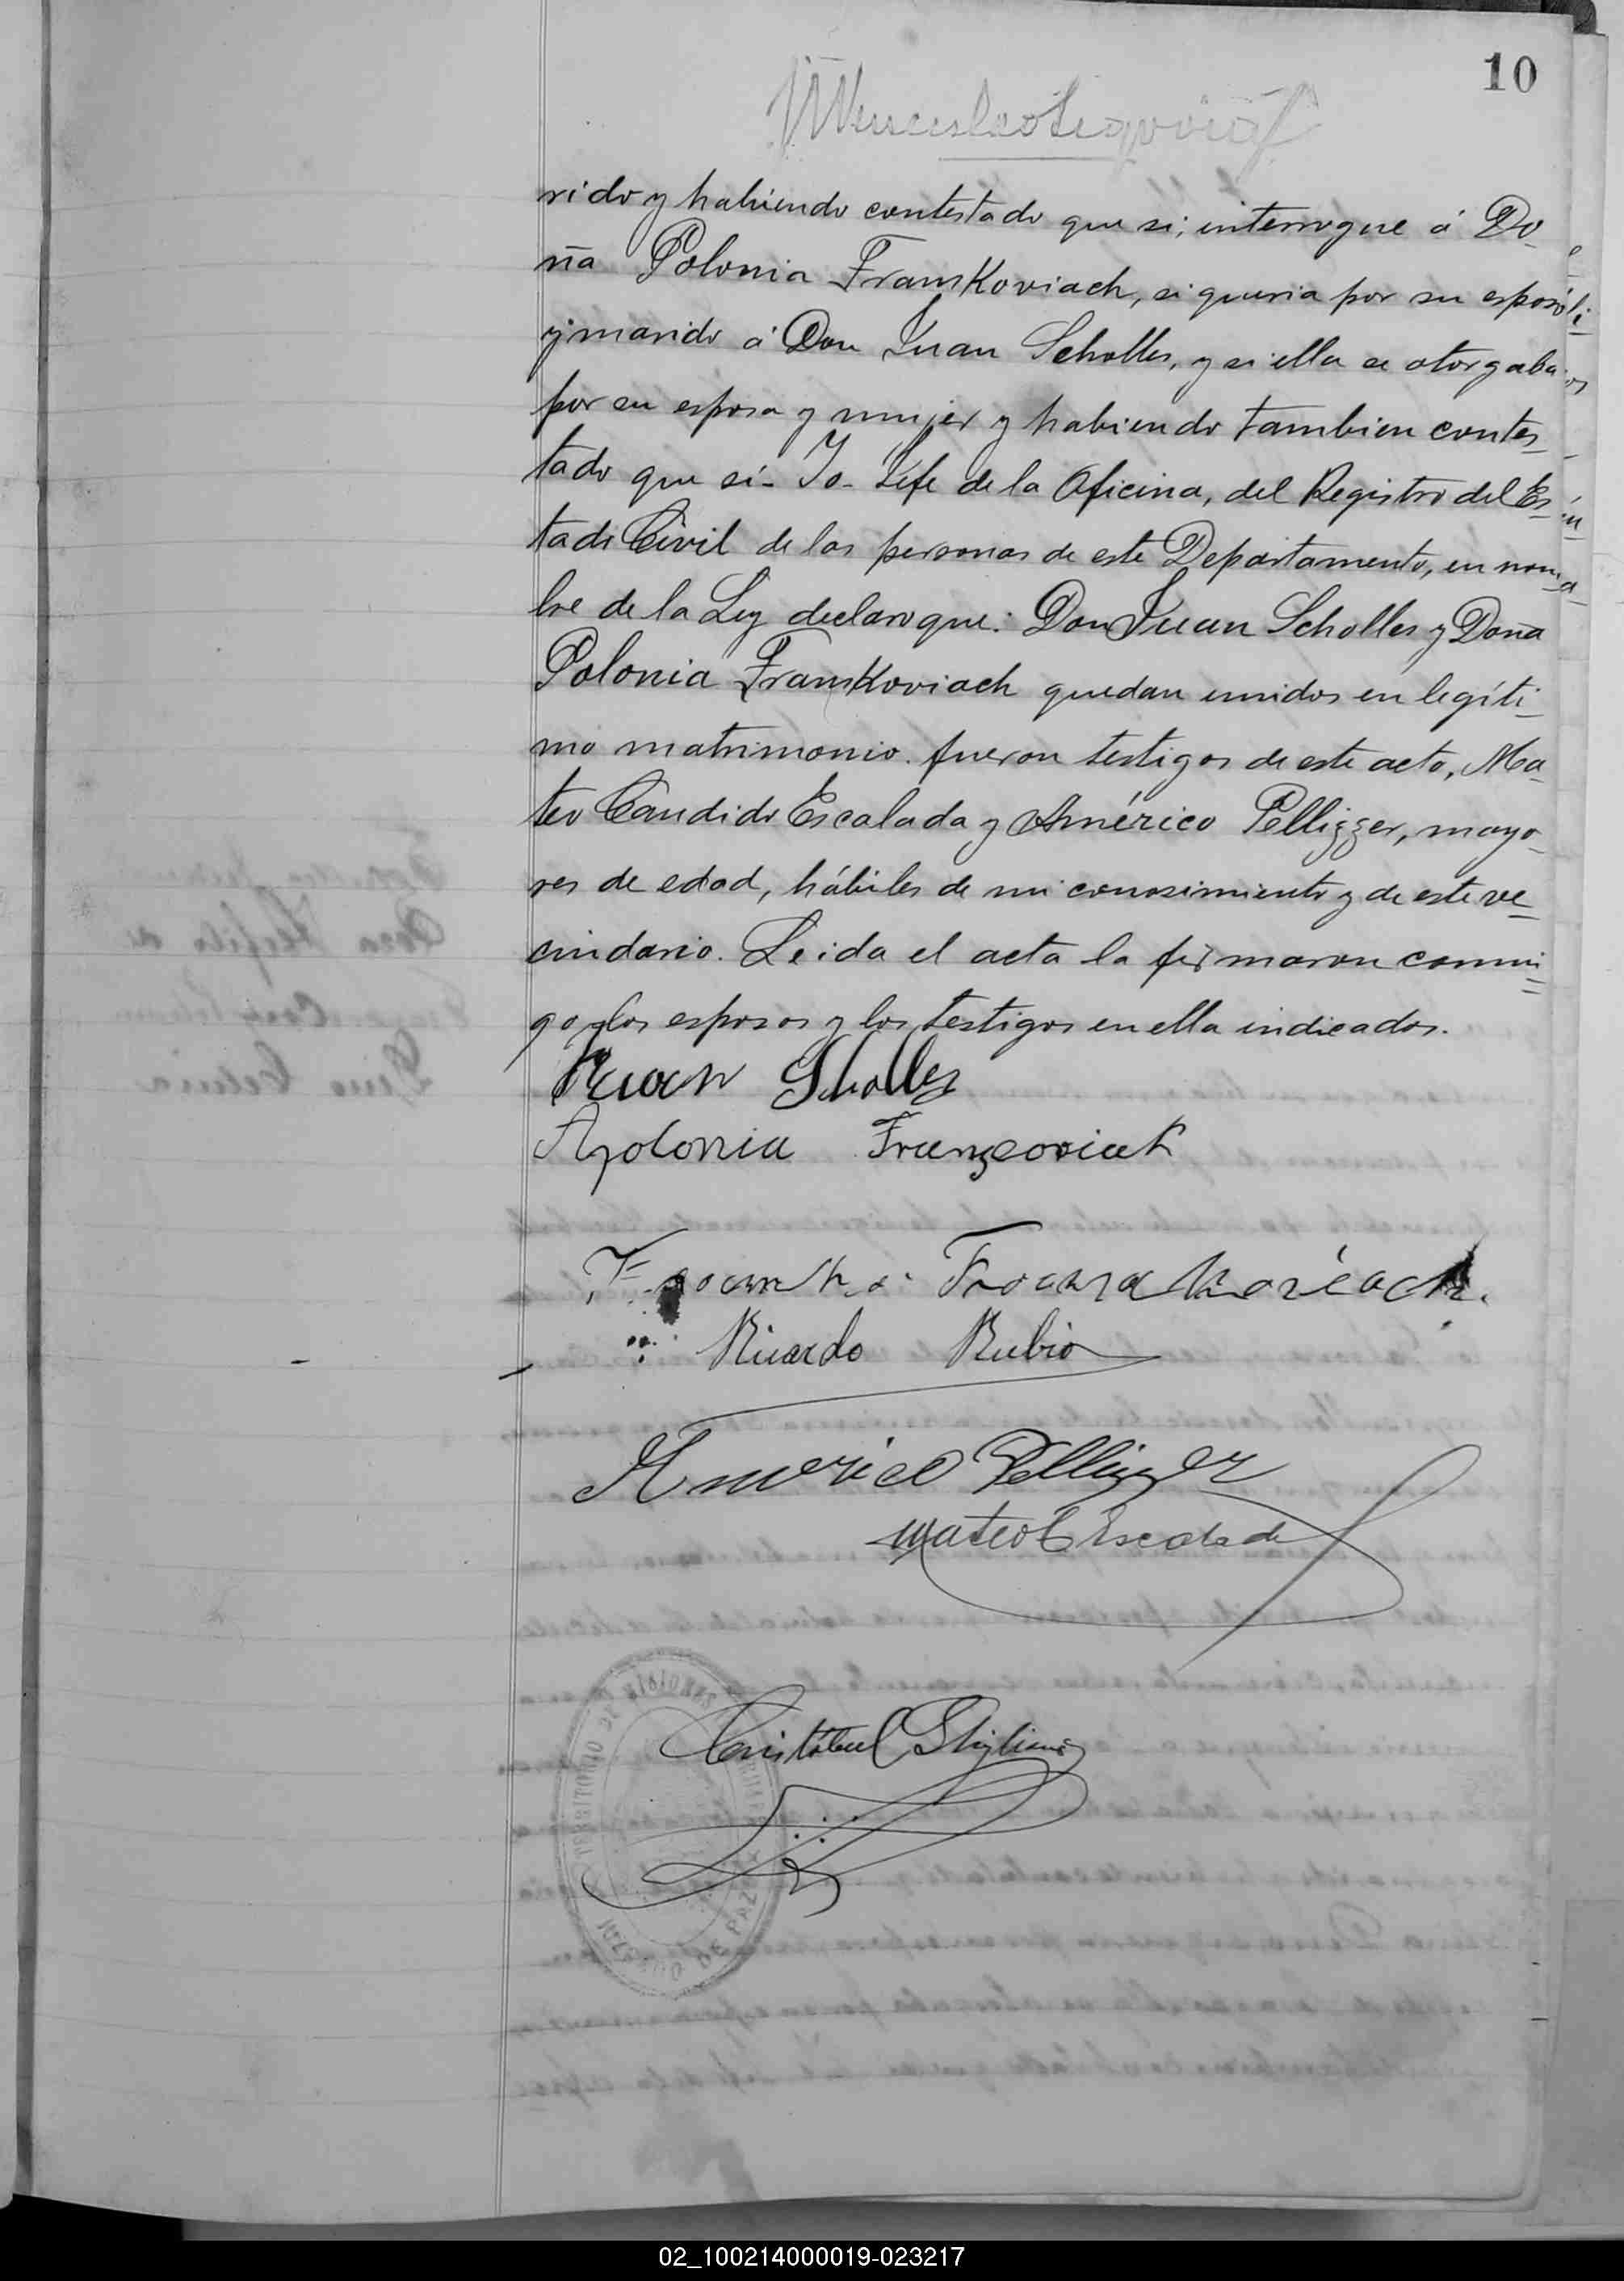 10
rido y habiendo contestado que si; interrogue á Do-
ña Polonia FransKoviach, si queria por su esposo
y marido á Don Juan Scholles, y si ella se otorgaba
por su esposa y mujer y habiendo tambien contes-
tado que si- Yo- Jefe de la Oficina, del Registro del Es-
tado Civil de las personas de este Departamento, en nom-
bre de la Ley declaro que: Don Juan Scholles y Doña
Polonia FransKoviach quedan unidos en legíti-
mo matrimonio. fueron testigos de este acto, Ma-
teo Candido Escalada y Américo Pellizzer, mayo-
res de edad, hábiles de mi conosimiento y de este ve-
cindario. Leida el acta la firmaron conmi-
go, los esposos y los testigos en ella indicados.
Juan Sholles
Apolonia Franzcoviak
Ricardo Rubio
Americo Pellizzer
Mateo C Escalada
Cristobal Stigliani
TERRITORIO DE MISIONES
JUZGADO DE PAZ
02_100214000019-023217